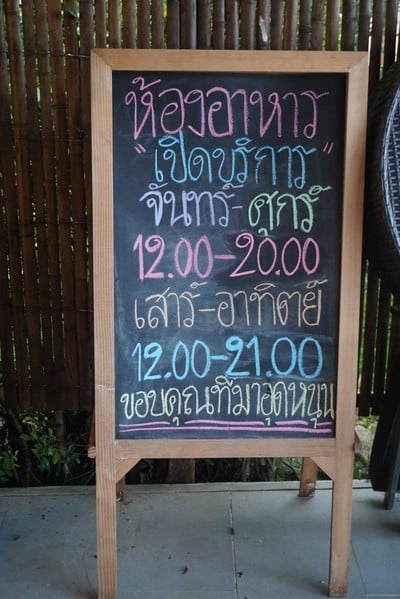 ห้องอาหาร
"เปิดบริการ"
จันทร์-ศุกร์
12.00-20.00
เสาร์-อาทิตย์
12.00-21.00
ขอบคุณที่มาอุดหนุน